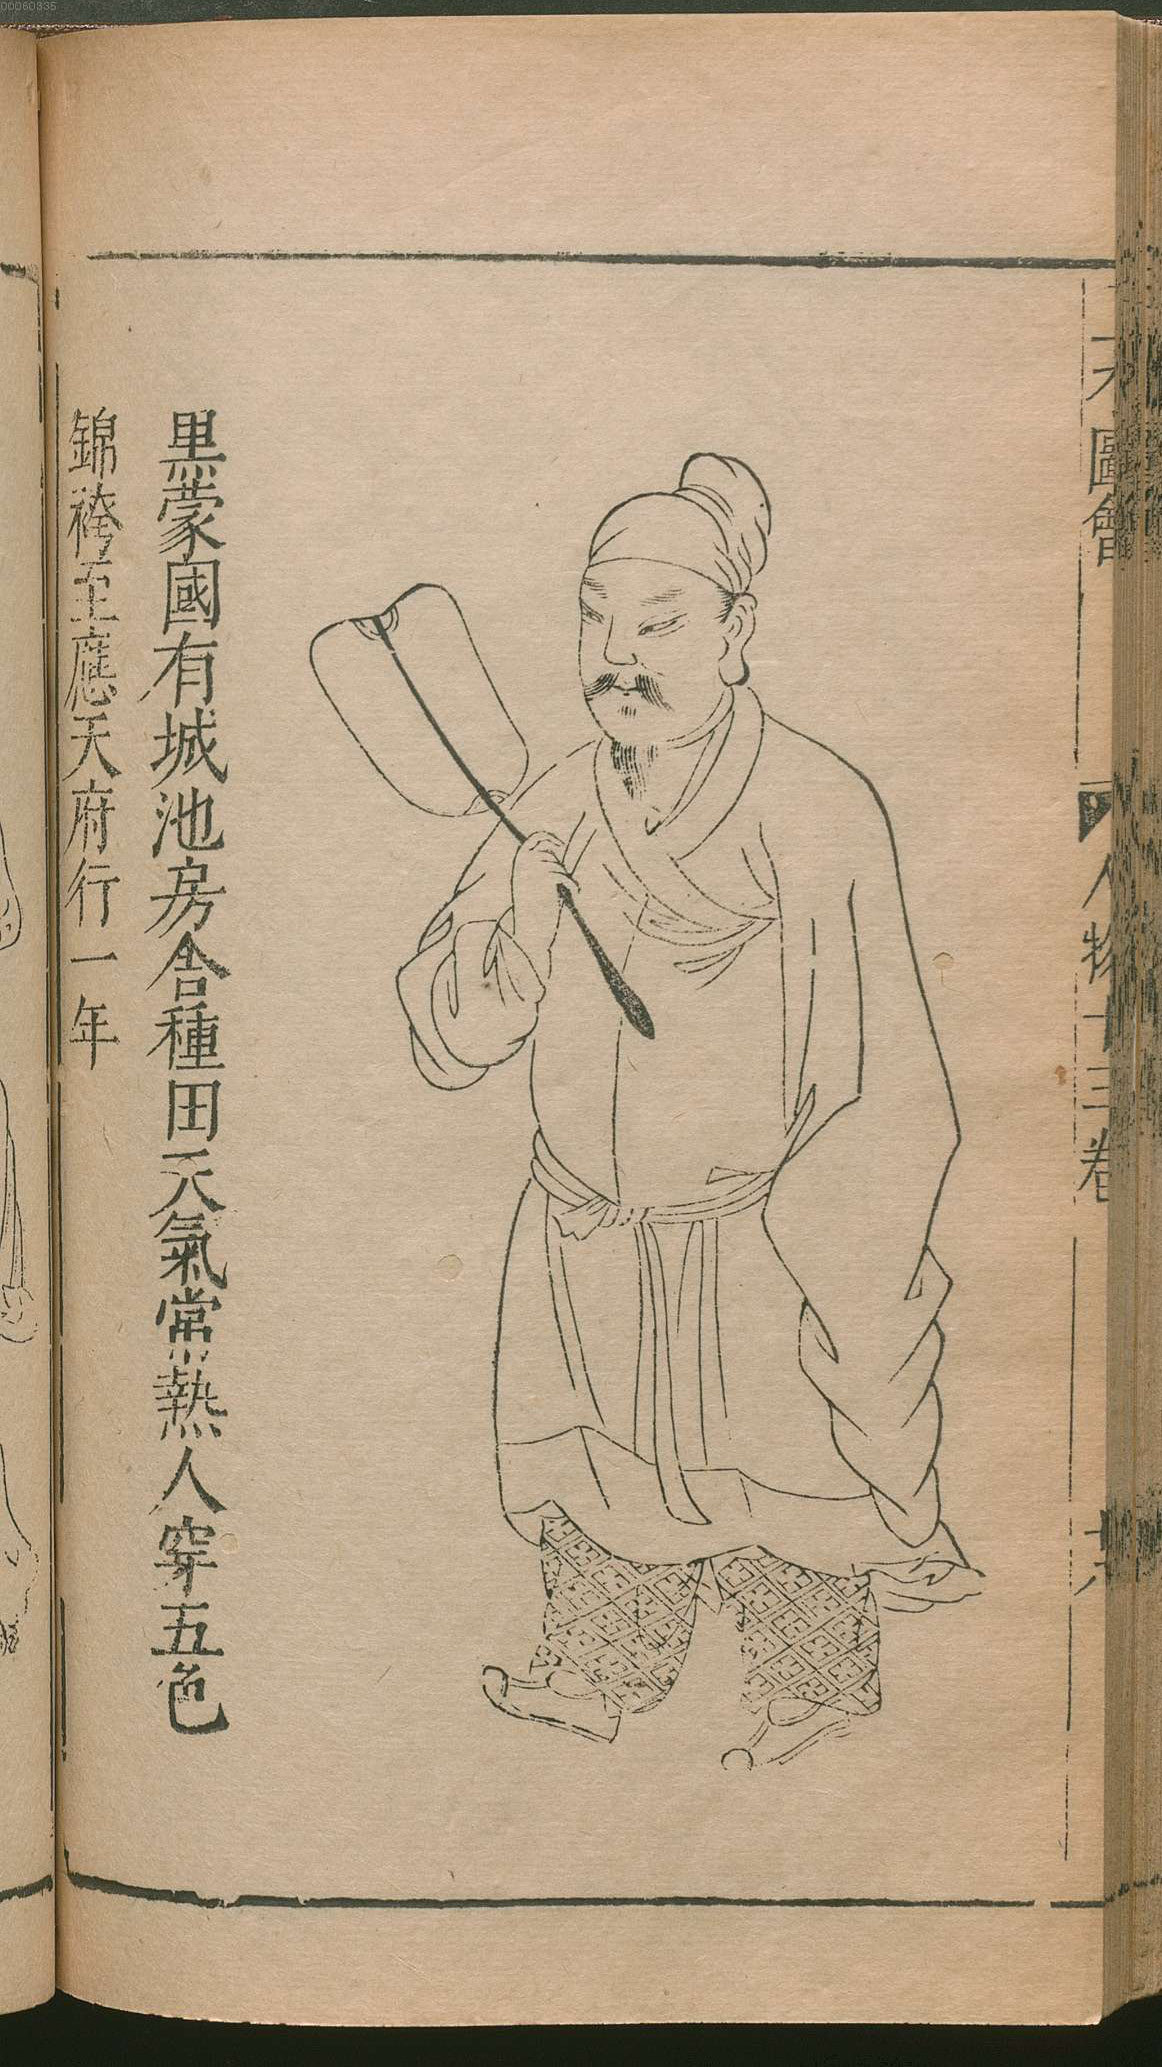 黒蒙國有城池房舍種田天氣常熱人穿五色
錦袴至應天府行一年
圖會
人物十三卷
00060335